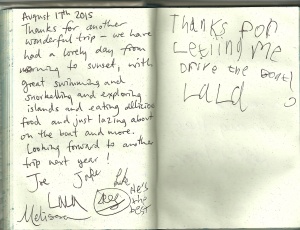 August 17th 2015
Thanks for another
wonderful trip – we have
had a lovely day from
morning to sunset, with
great swimming and
snorkelling and exploring
islands and eating delicious
food and just lazing about
on the boat and more.
Looking forward to another
trip next year!
Joe Jake
LALA
Melissa
He's
the
best
Thanks for
Letting Me
Drive the Boat!
LaLa